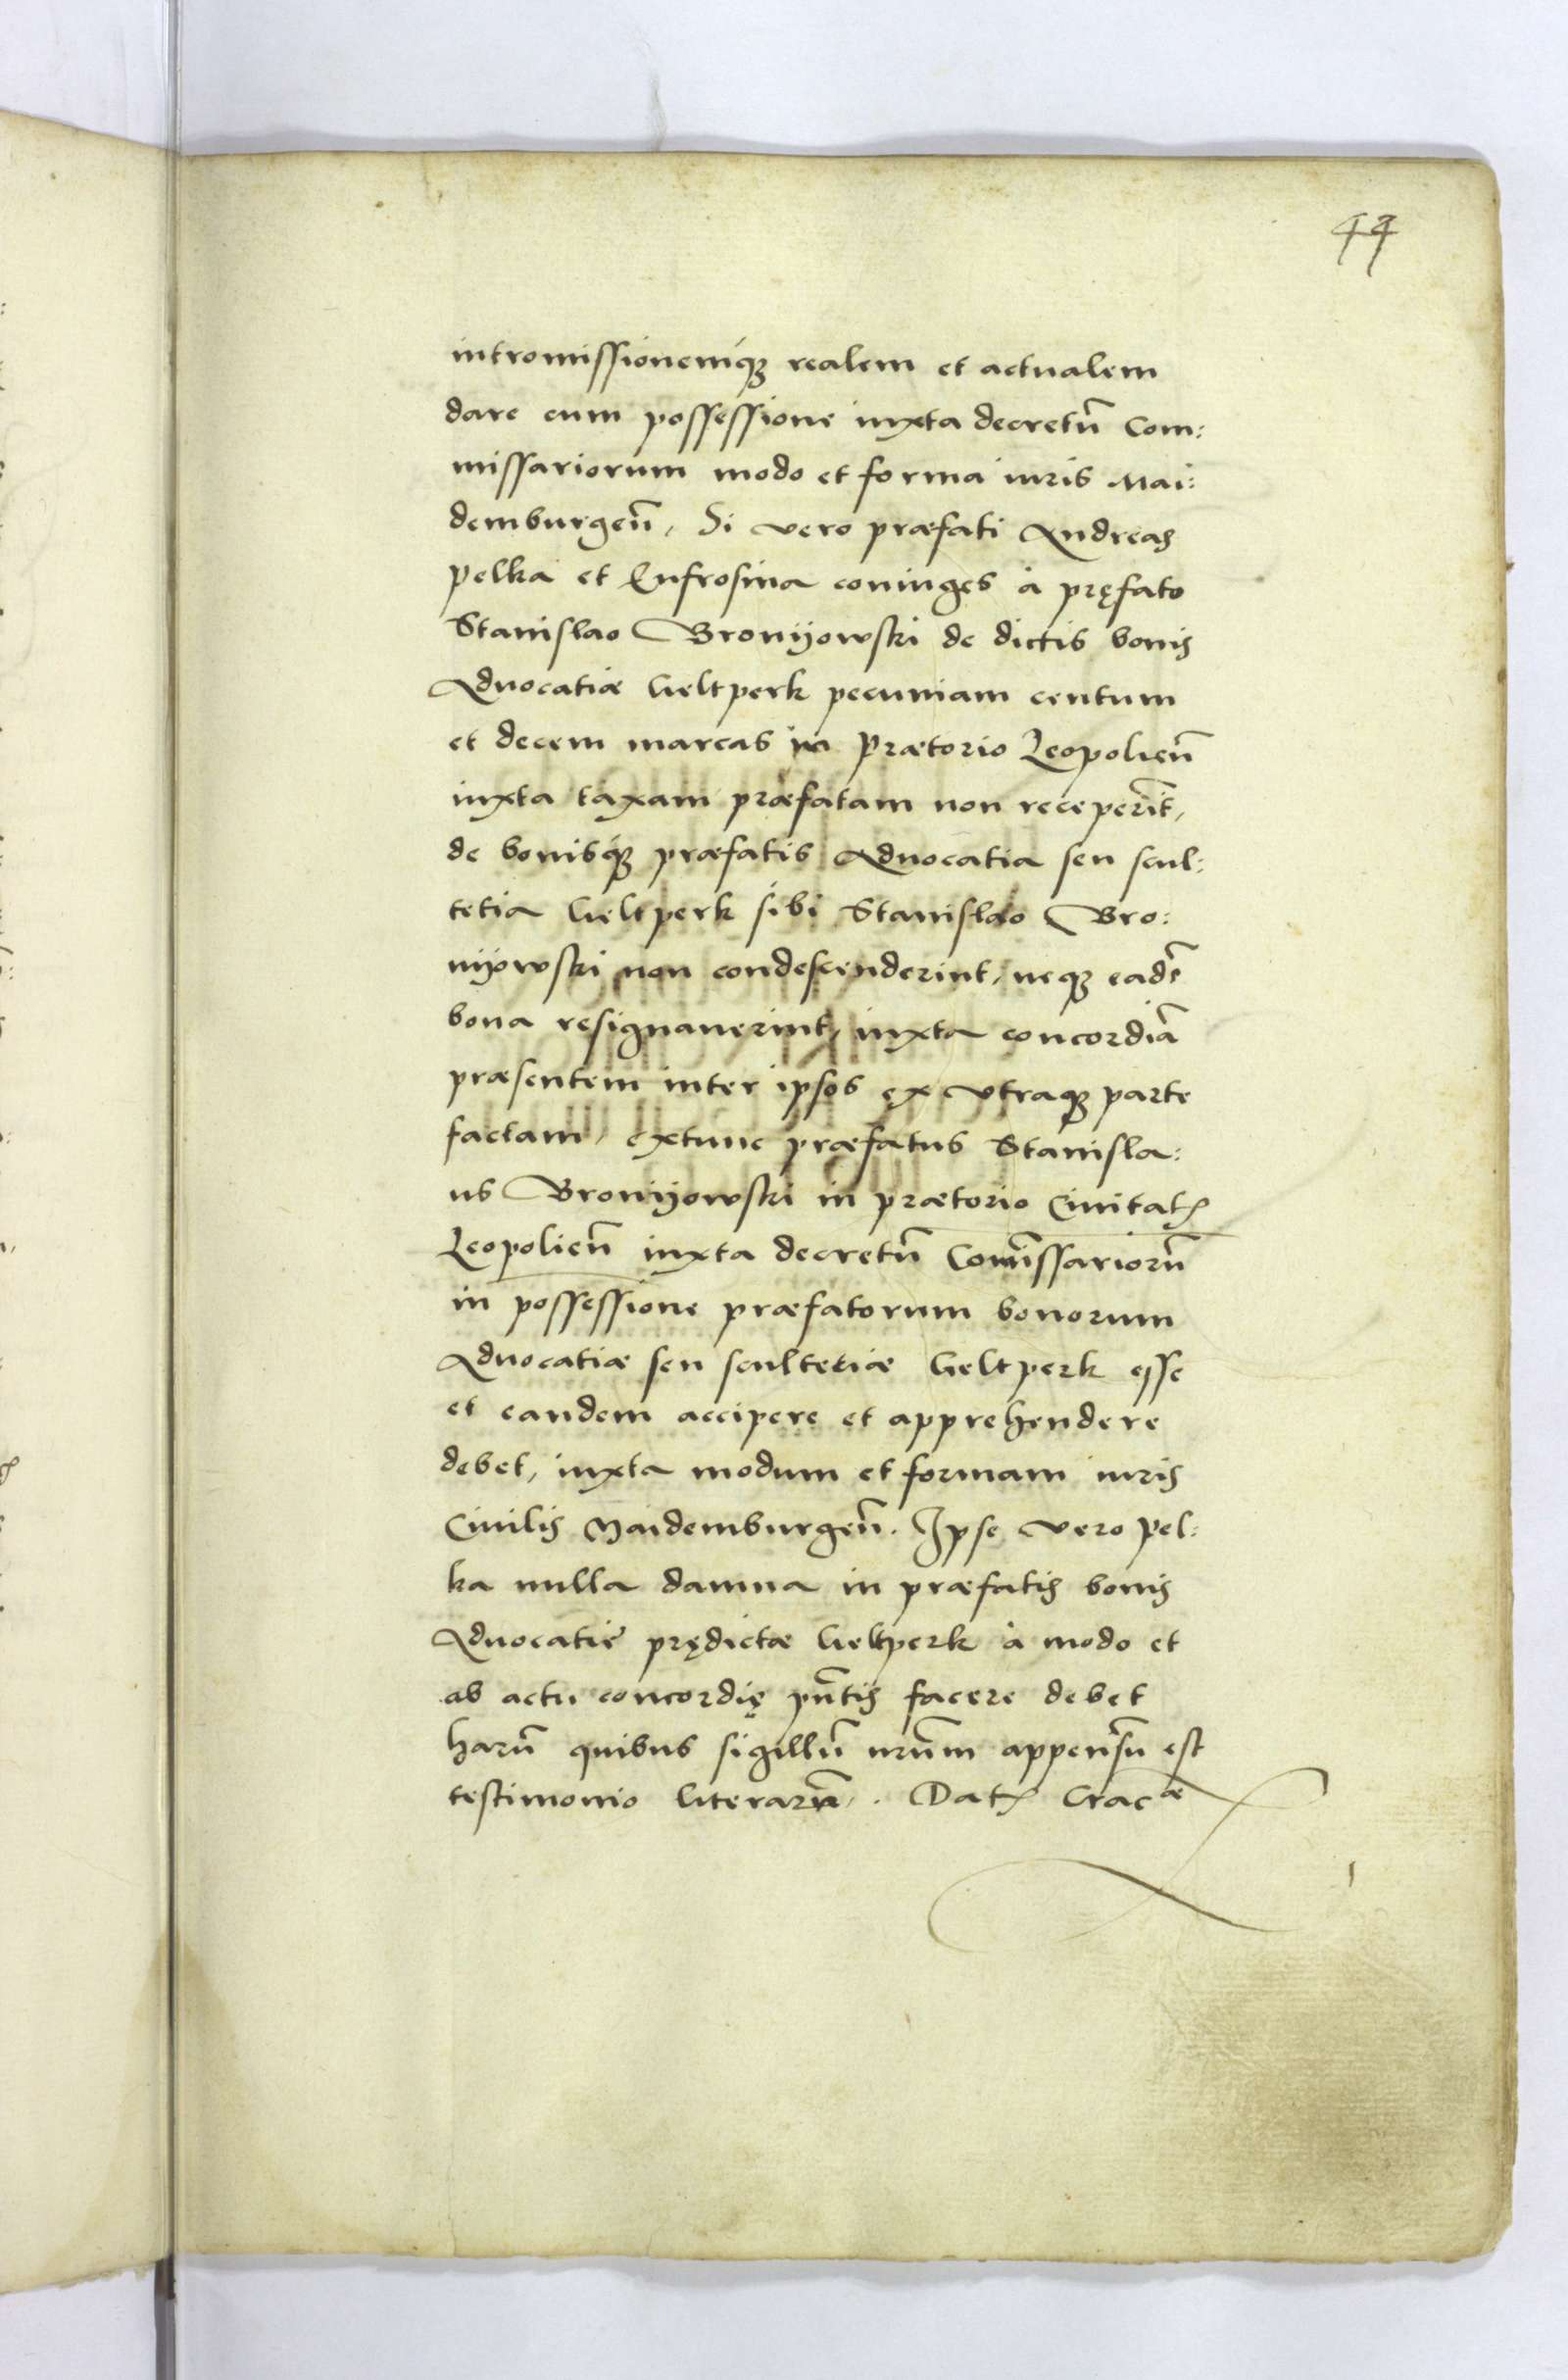 44
intromissionemq́ꝫ realem et actualem
dare cum possessione iuxta decretū Com:
missariorum modo et forma iuris Mai:
demburgeñ, Si vero præfati Andreas
Pelka et Eufrosina coniuges à pręfato
Stanislao Bronijowski de dictis bonis
Aduocatiæ Heltperk pecuniam centum
et decem marcas in Prætorio Leopolieñ
iuxta taxam præfatam non receperīt,
de bonisq́ꝫ præfatis Aduocatia seu scul:
tetia Heltperk sibi Stanislao Bro:
nijowski non condescenderint, neqꝫ eadē
bona resignauerint, iuxta concordiā
præsentem inter ipsos ex vtraqꝫ parte
factam, extunc præfatus Stanisla:
us Bronijowski in prætorio Ciuitatꝭ
Leopolieñ iuxta decretū Com̄issariorū
in possessione præfatorum bonorum
Aduocatiæ seu scultetiæ Heltperk esse
et eandem accipere et apprehendere
debet, iuxta modum et formam iuris
Ciuilis Maidemburgeñ. Ipse vero Pel:
ka nulla damna in præfatis bonis
Aduocatię prędictæ Heltperk à modo et
ab actu concordię pn̄tis facere debet
harū quibus sigillū nr̄um appensū est
testimonio literarū. Datꝭ Cracæ